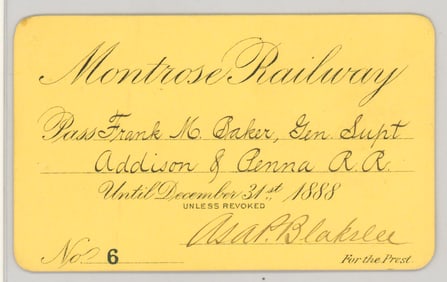 Montrose Railway
Pass Frank M. Baker, Gen. Supt
Addison & Penna R.R.
Until December 31st, 1888
UNLESS REVOKED
Asa P. Blakslee
No. 6
For the Prest.